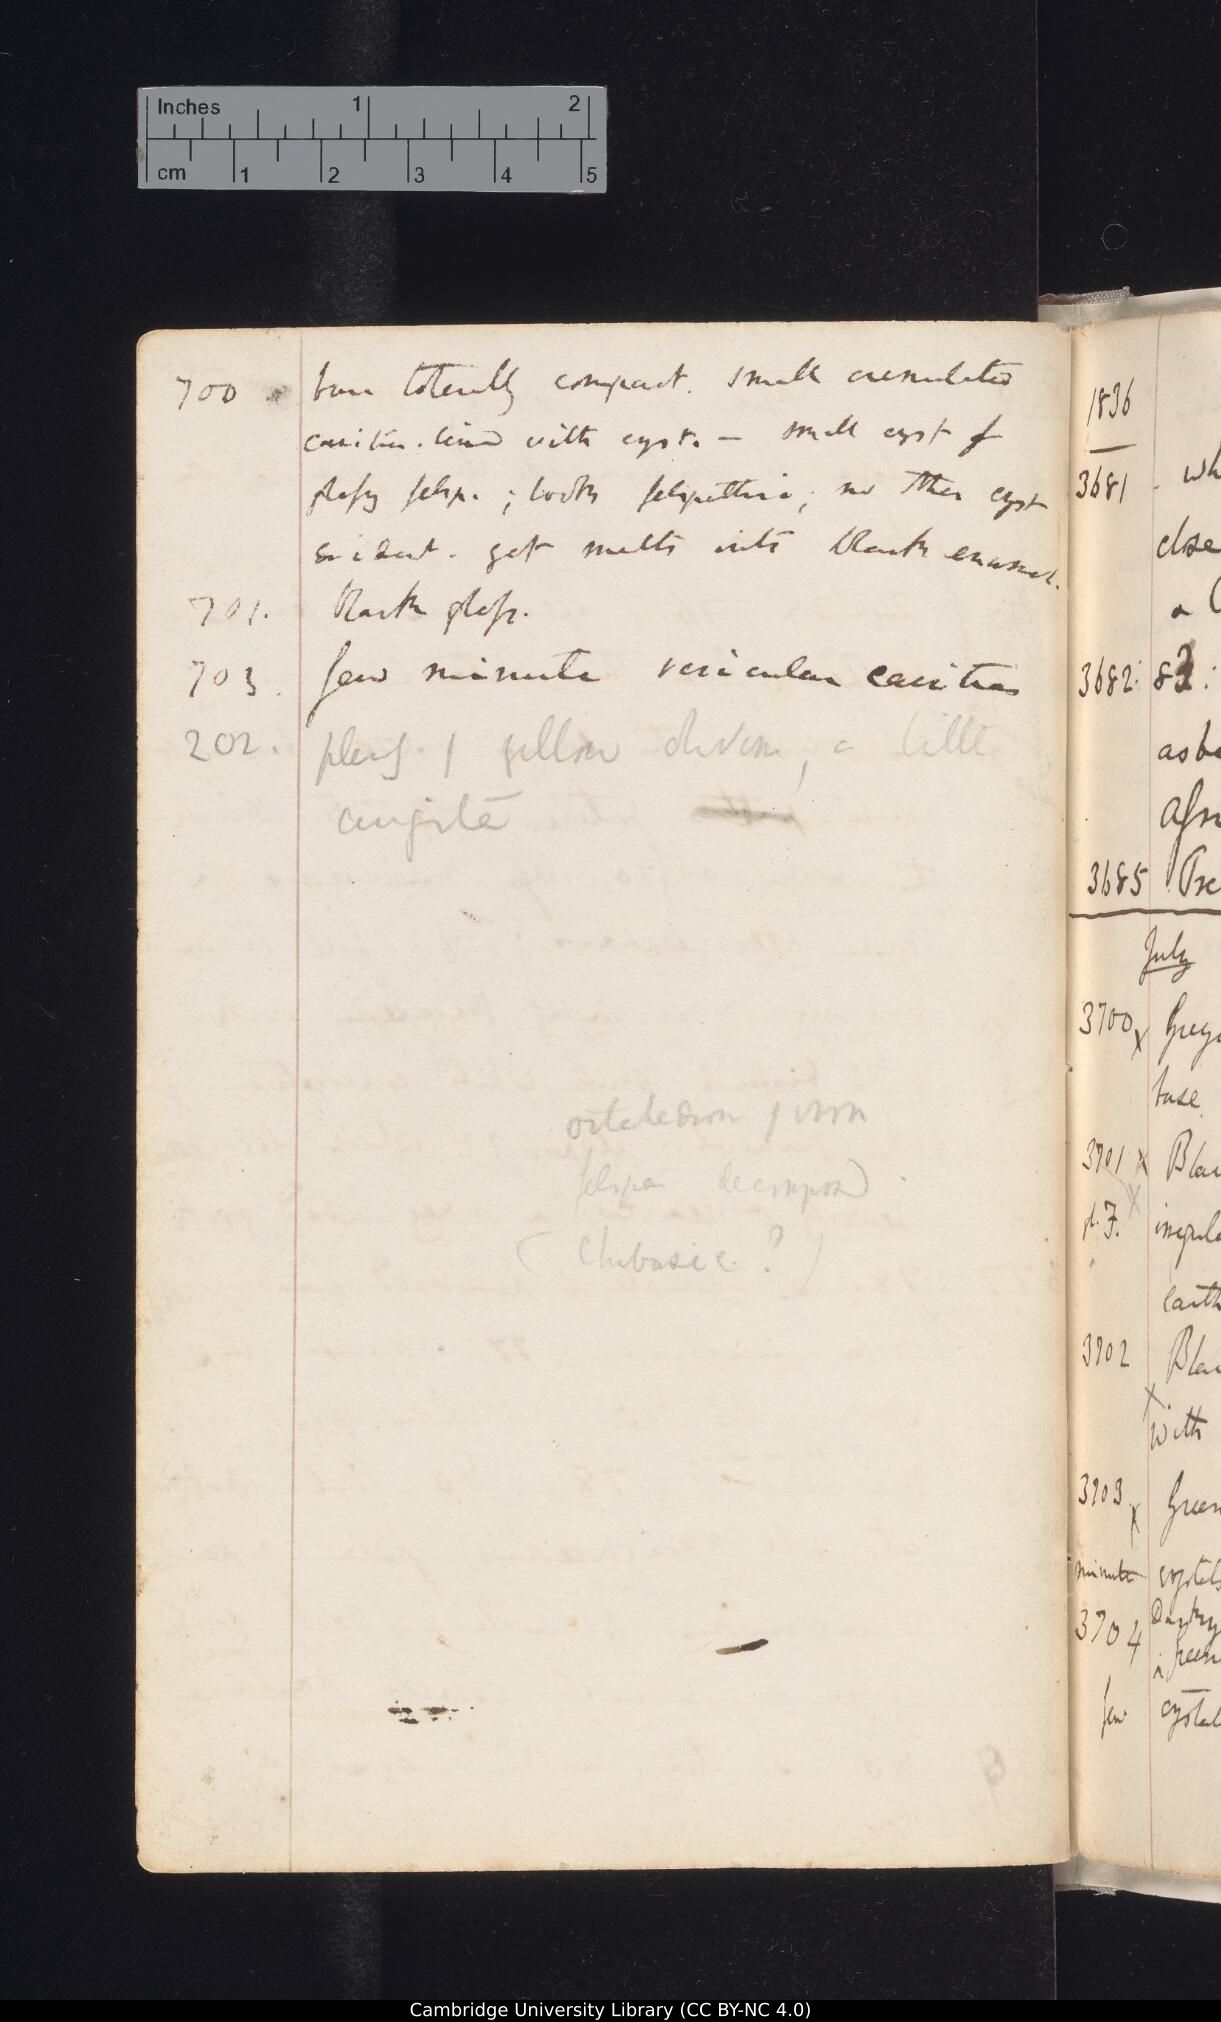 Inches 1 2
cm 1 2 3 4 5
700 base totally compact. small crenulated
cavities. lined with cryst. — small cryst of
glassy felsp. ; looks felspathic; no other cryst
evident. yet melts into black enamel.
701. Black glass.
703. few minute vesicular cavities
202. plenty of yellow olivine, a little
augite
octahedron of iron
felspar decomposed.
(Chabasie?)
1836
3681 - wh
close
a
3682: 83:
asb
Afri
3685
July
3700 x Grey
base
3701 x Blac
pl. F. irregula
earth
3702 Blac
x with
3703 x Green
minute crystals
3704 Dark
green
few crystal
Cambridge University Library (CC BY-NC 4.0)